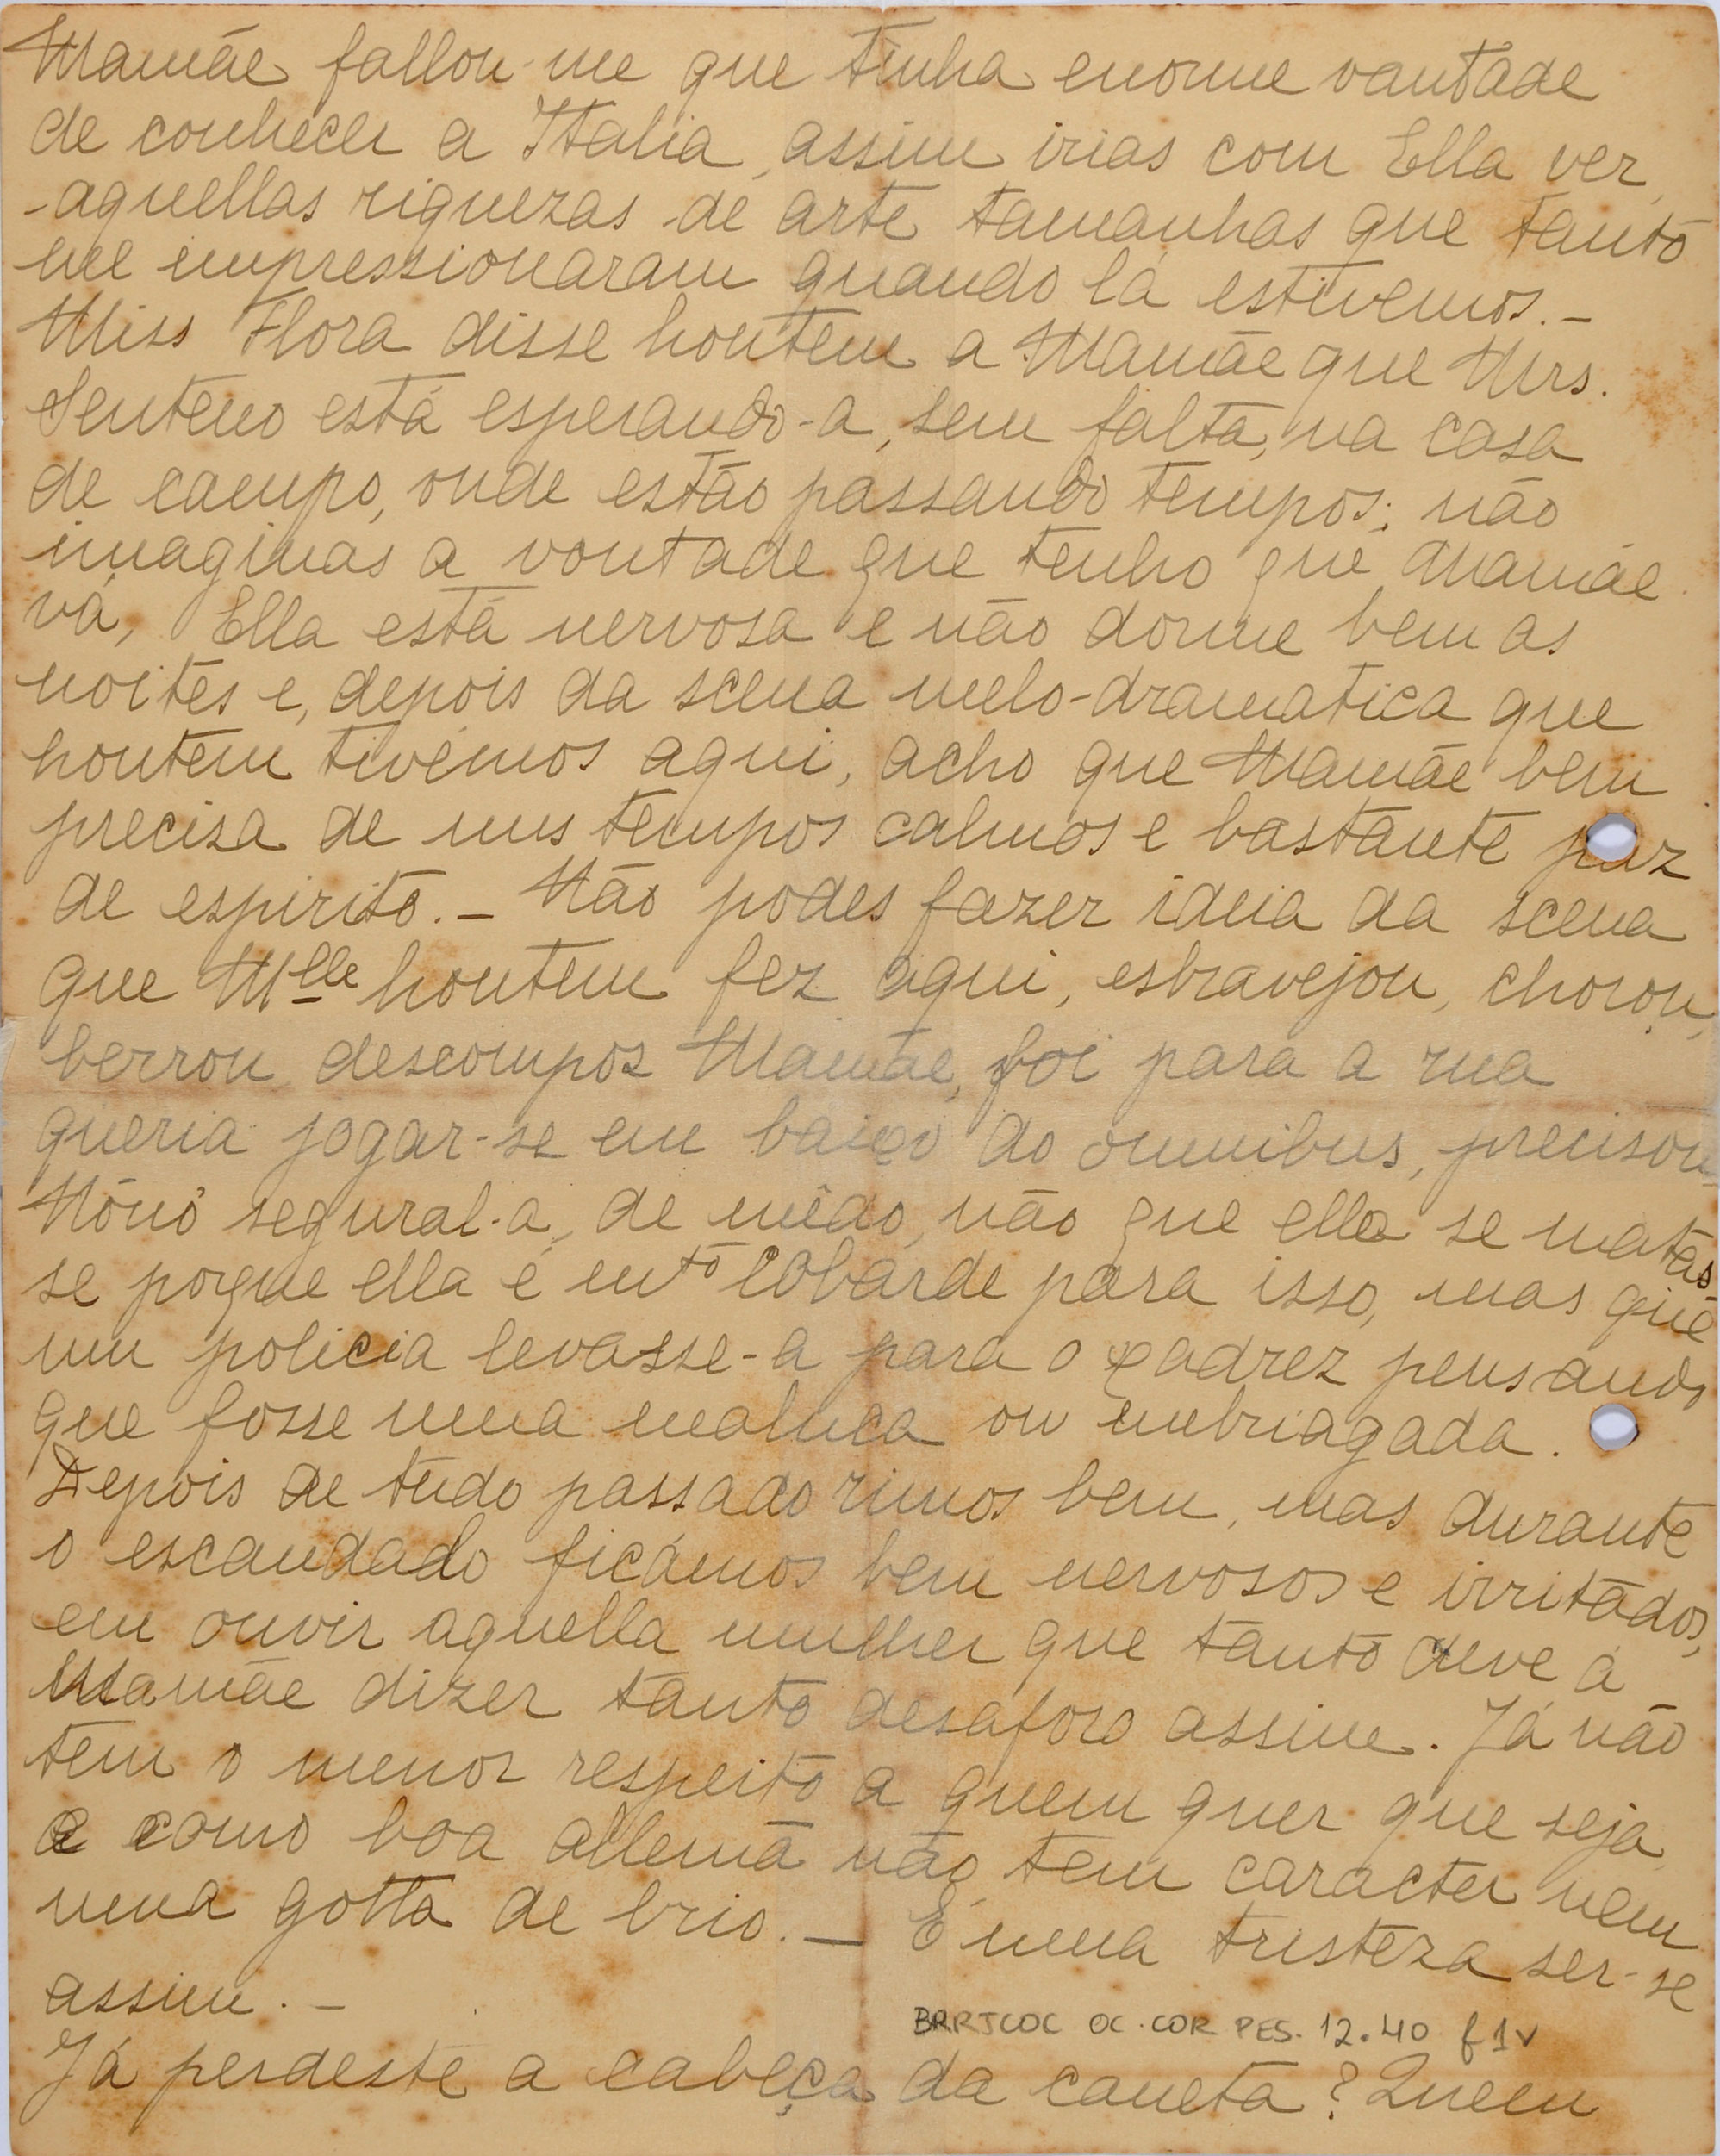 Mamãe fallou-me que tinha enorme vontade
de conhecer a Italia, assim irias com Ella ver
aquellas riquezas de arte tamanhas que tanto
me impressionaram quando lá estivemos. –
Miss Flora disse hontem a Mamãe que Mrs.
Senteno está esperando-a, sem falta, na casa
de campo, onde estão passando tempos; não
imaginas a vontade que tenho que Mamãe
vá, Ella está nervosa e não dorme bem as
noites e, depois da scena melo-dramatica que
hontem tivémos aqui, acho que Mamãe bem
precisa de uns tempos calmos e bastante paz
de espirito. – Não podes fazer ideia da scena
que Mlle hontem fez aqui, esbravejou, chorou,
berrou descompoz Mamãe, foi para a rua
queria jogar-se em baixo do omnibus, precisou
Nônô segural-a, de mêdo, não que ella se matas-
se porque ella é mto cobarde para isso, mas que
um policia levasse-a para o xadrez pensando
que fosse uma maluca ou embriagada.
Depois de tudo passado rimos bem, mas durante
o escandado ficámos bem nervosos e irritados,
em ouvir aquella mulher que tanto deve á
Mamãe dizer tanto desaforo assim. Já não
tem o menor respeito a quem quer que seja
e como boa allemã não tem caracter nem
uma gotta de brio. – É uma tristeza ser-se
assim. –
BRRJCOC OC.COR PES. 12.40 f1v
Já perdeste a cabeça da caneta? Quem